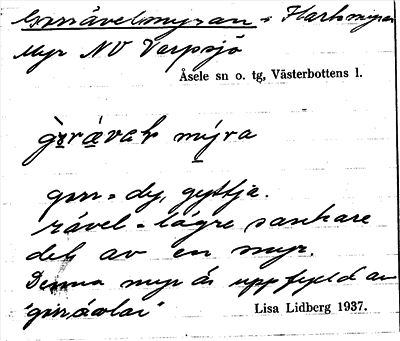 Gorråvelsmyran = Flarkmyran
Myr NV Varpsjö
Åsele sn o. tg, Västerbottens l.
mýra
gorr = dy, gyttja.
råvel = lägre sankare
del av en myr.
Denna myr är uppfylld av
Lisa Lidberg 1937.